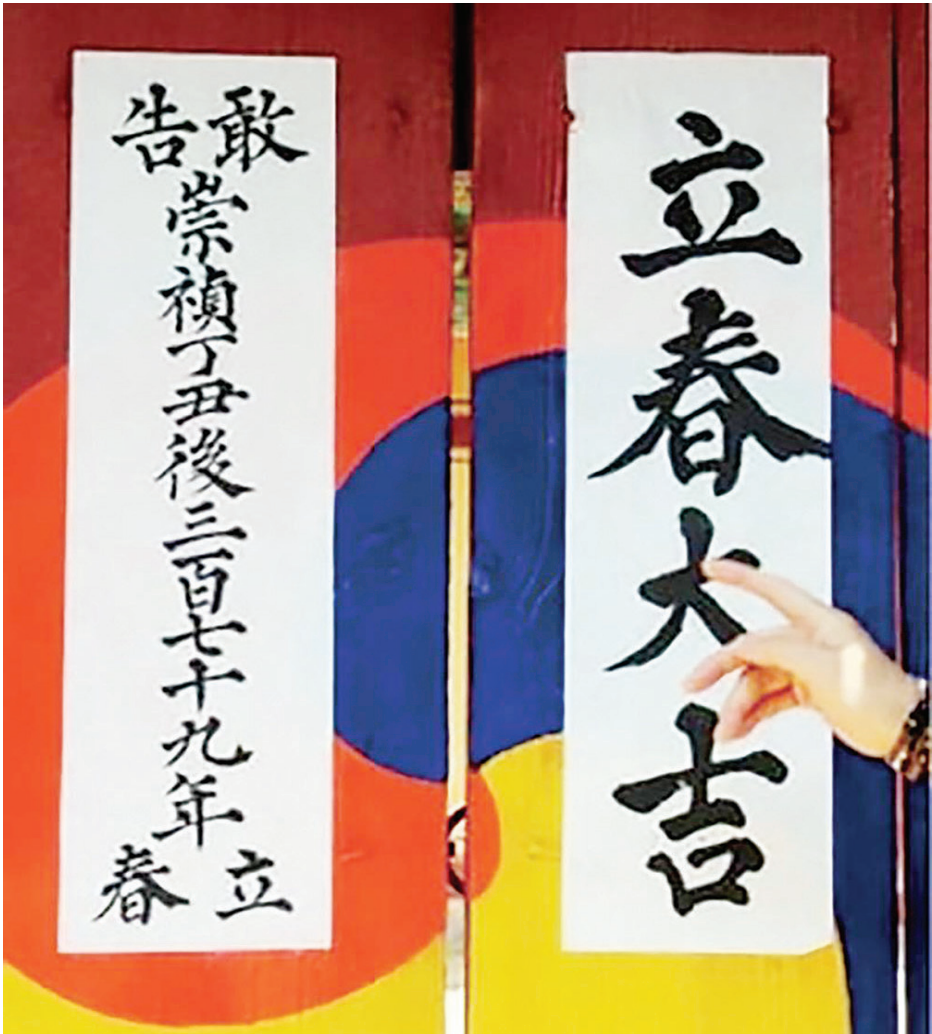 立春大吉
敢告
崇禎丁丑後三百七十九年
立春